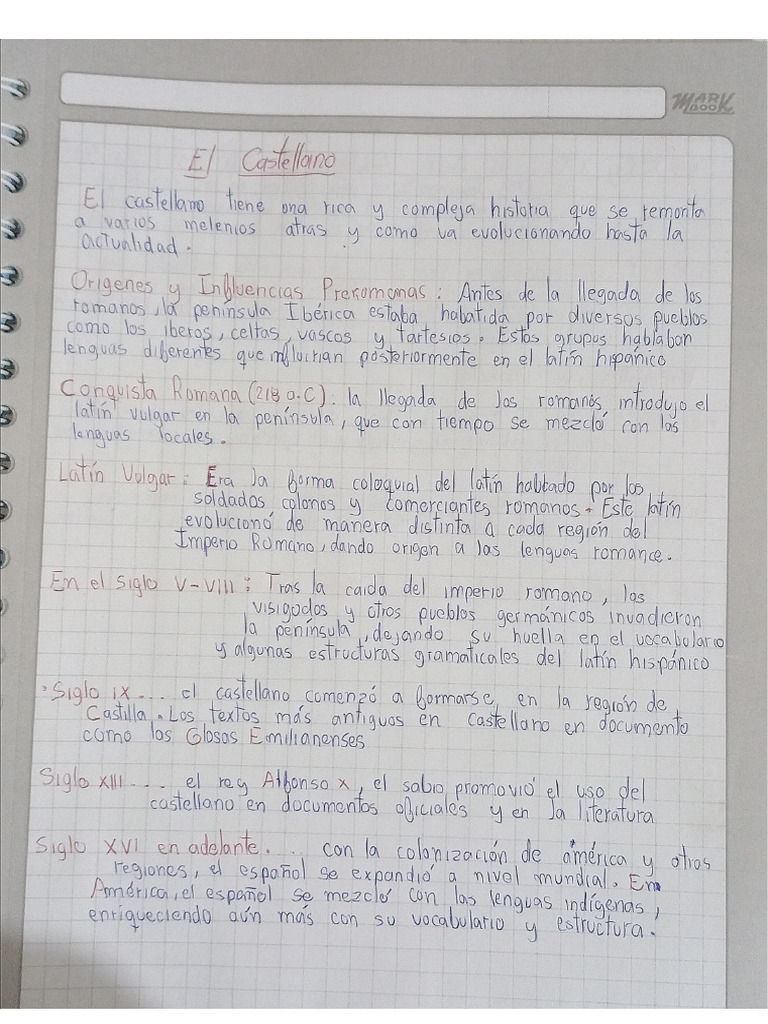 MARK BOOK
El Castellano
El castellano tiene una rica y compleja historia que se remonta
a varios melenios atras y como va evolucionando hasta la
actualidad.
Origenes y Influencias Preromanas: Antes de la llegada de los
romanos, la península Ibérica estaba habatida por diversos pueblos
como los iberos, celtas, vascos y tartesios. Estos grupos hablaban
lenguas diferentes que influirian posteriormente en el latín hipánico
Conquista Romana (218 a.C). la llegada de los romanos introdujo el
latín vulgar en la península, que con tiempo se mezcló con las
lenguas locales.
Latín Vulgar: Era la forma coloquial del latín hablado por los
soldados colonos y comerciantes romanos. Este latín
evolucionó de manera distinta a cada región del
Imperio Romano, dando origen a las lenguas romance.
En el siglo V-VIII: Tras la caida del imperio romano, los
visigodos y otros pueblos germánicos invadieron
la península, dejando su huella en el vocabulario
y algunas estructuras gramaticales del latín hispánico
Siglo IX.... el castellano comenzó a formarse en la región de
Castilla. Los textos más antiguos en castellano en documento
como las Glosas Emilianenses
Siglo XIII.... el rey Alfonso X, el sabio promovió el uso del
castellano en documentos oficiales y en la literatura
Siglo XVI en adelante.... con la colonización de américa y otros
regiones, el español se expandió a nivel mundial. En
América, el español se mezcló con las lenguas indígenas,
enriqueciendo aún más con su vocabulario y estructura.